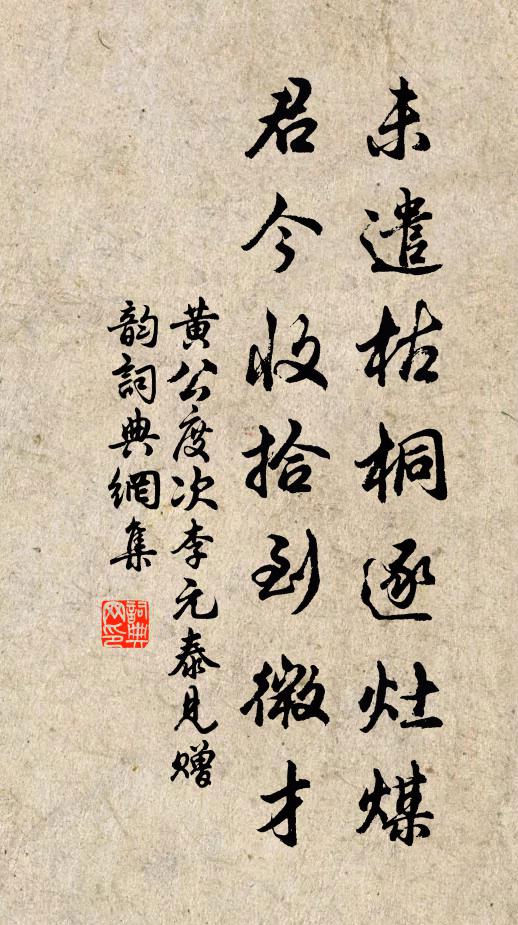 未遣枯桐逐灶煤
君今收拾到微才
黄公度次李元泰見赠
韵詞典網集
詞典網印